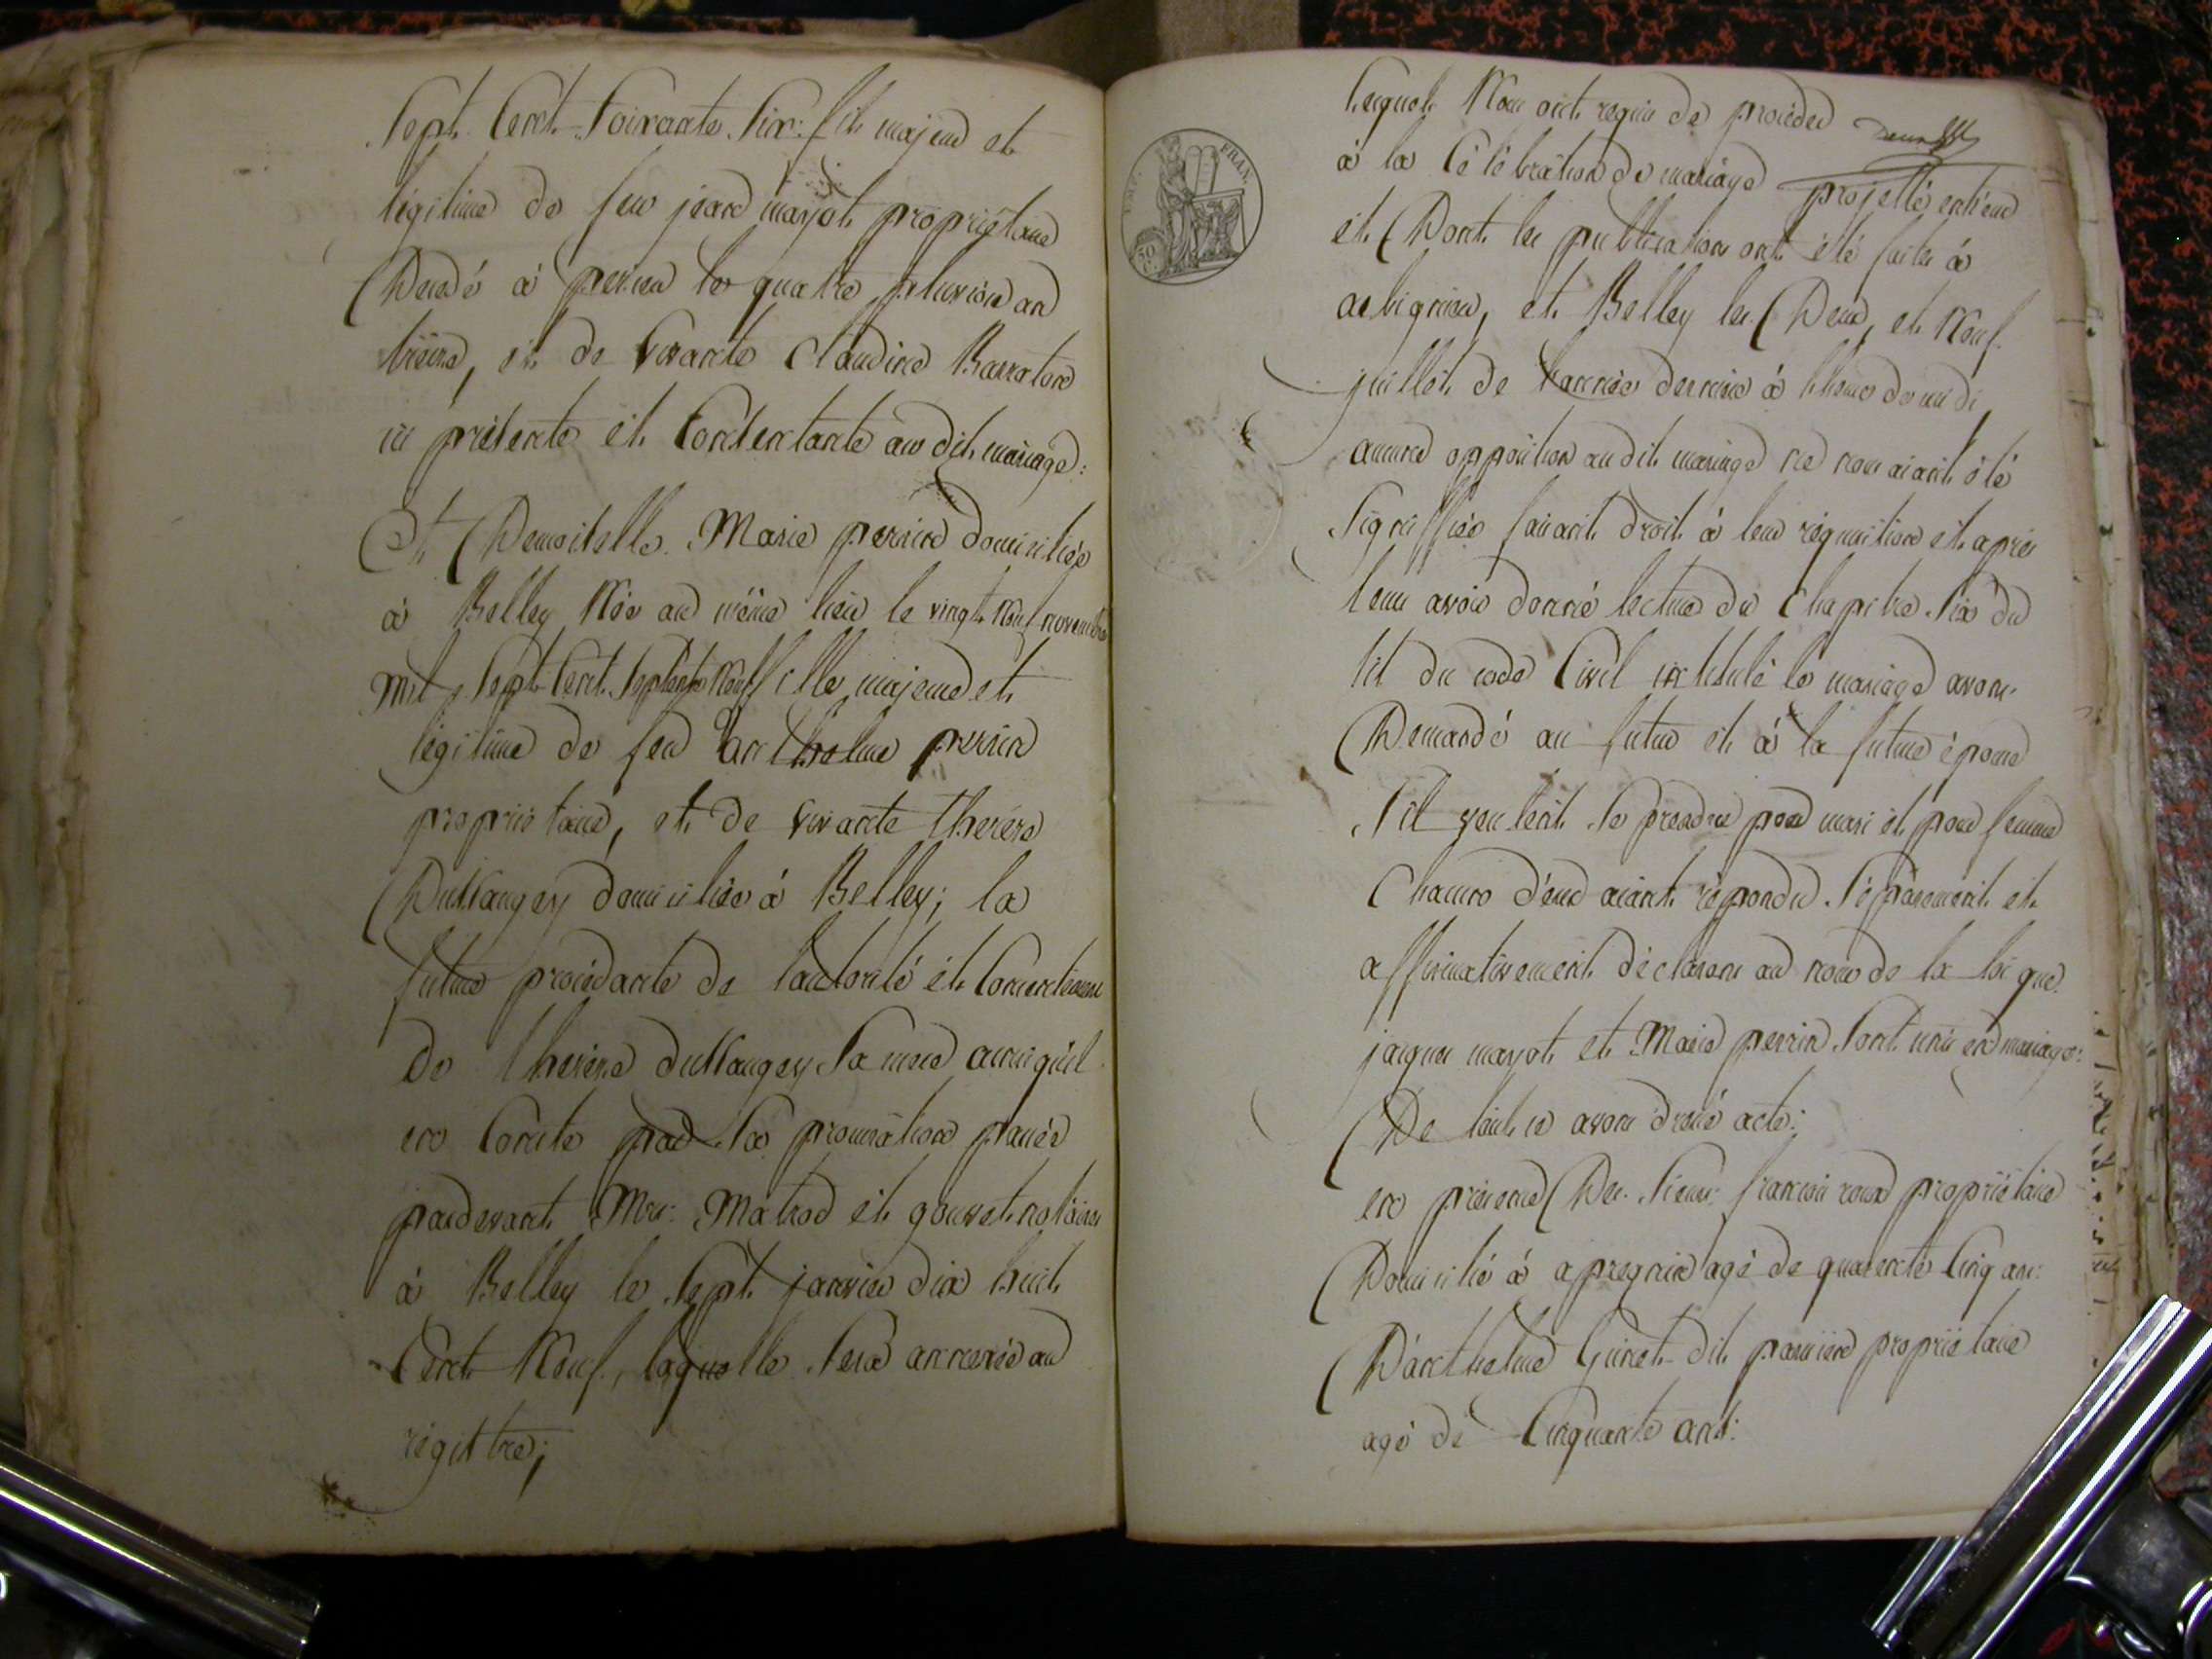 Sept Cent Soixante Six: fils majeur et
légitime de feu jean mayot propriétaire
Décédé à perieu le quatre pluviose an
treize, et de vivante Claudine Barraton
ici présente et Consentante au dit mariage:
Et Demoiselle Marie perrin domiciliée
à Belley Née au même lieu le vingt Neuf novembre
Mil Sept Cent Septente Neuf fille majeure et
légitime de feu anthelme perrin
propriétaire, et de vivante therese
Dullangey domiciliée à Belley; la
future procédante de lautorité et Consentement
de therese dullangey Sa mere ainsi quil
en Conste par Sa procuration passée
pardevant Mrs. Matrod et gouvet notaires
à Belley le Sept janvier dix huit
Cent Neuf, laquelle Sera annexée au
régistre;
EMP. FRAN.
50 C.
Lesquels Nous ont requis de procéder
à la Célébration de mariage projetté entreux
et Dont les publications ont été faites à
arbignieu, et Belley les Deux, et Neuf
juillet de lannée derniere à lheure de midi
aucune opposition au dit mariage ne nous aiant été
Signiffiée faisant droit à leur réquisition et après
leur avoir donné lecture du Chapitre Six du
tit du code Civil intitulé le mariage avons
Demandé au futur et à la future épouse
Sil veulent Se prendre pour mari et pour femme
Chacun d'eux aiant répondu Séparement et
affirmativement déclarons au nom de la loi que
jacques mayot et Marie perrin Sont unis en mariage:
De tout ce avons dressé acte:
en présence Des Sieurs francois roux propriétaire
Domicilié à apregnin agé de quarente Cinq ans:
D'anthelme Guinet dit propriétaire
agé de Cinquante ans: